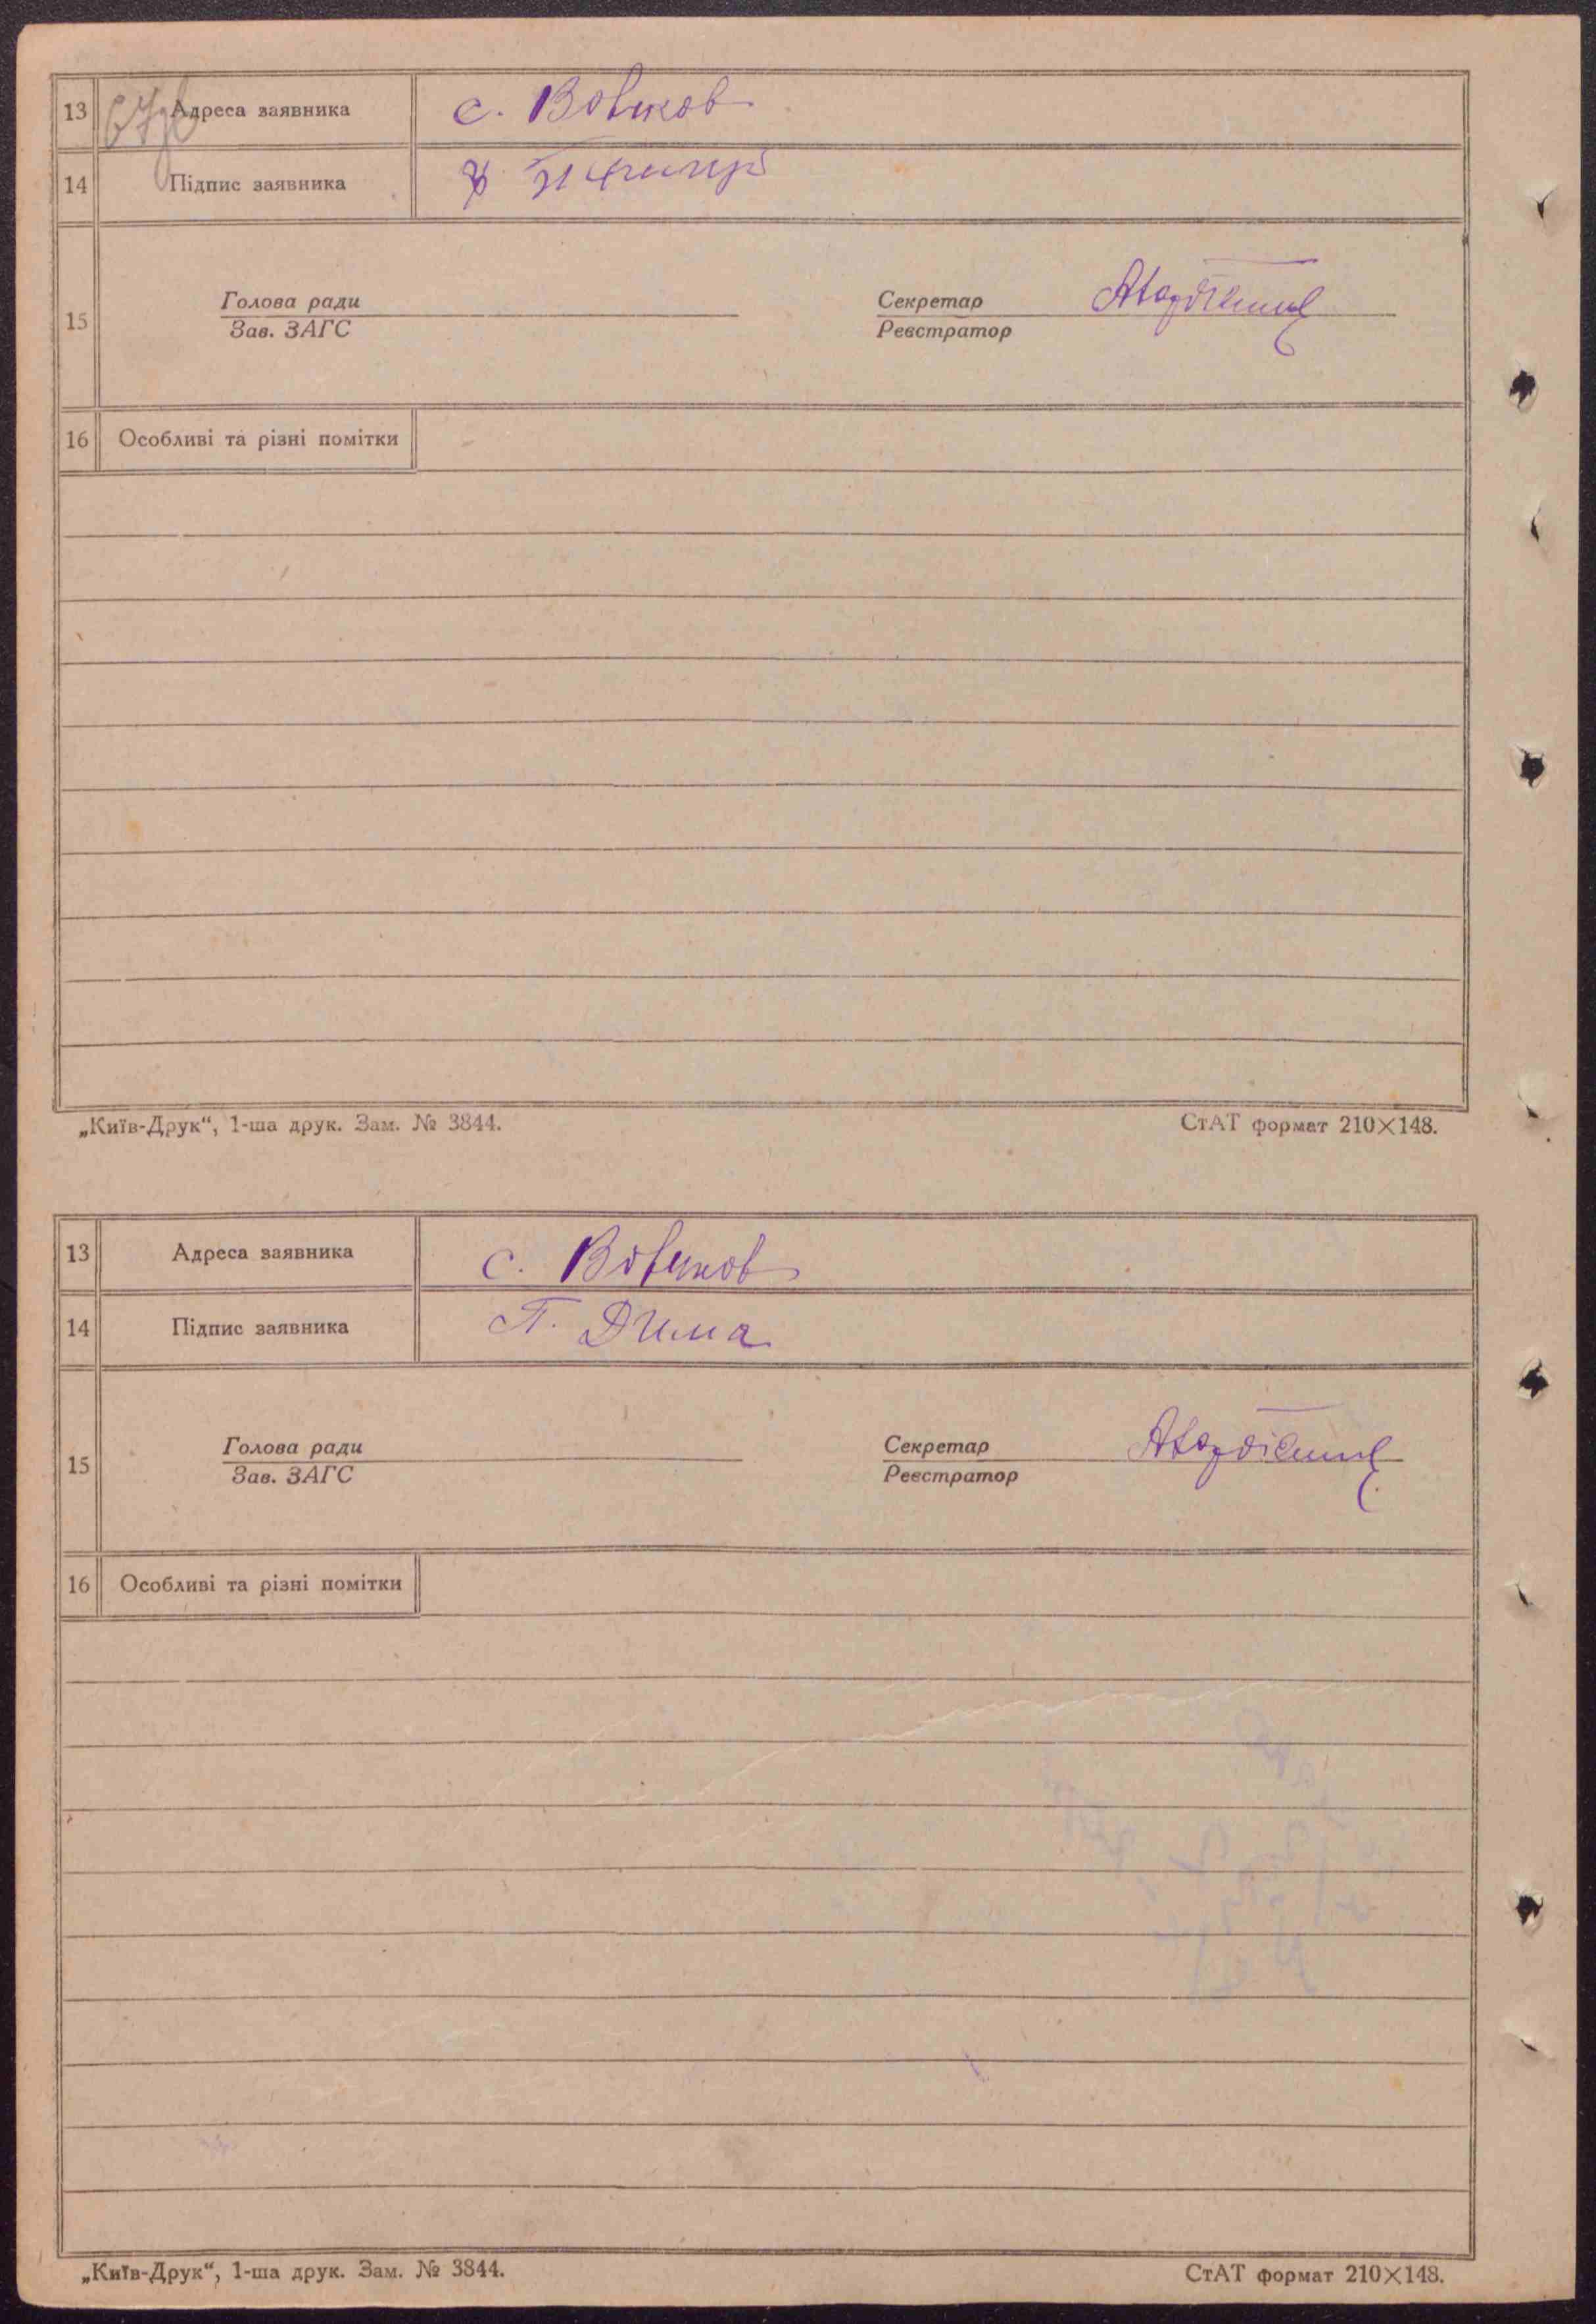 13 Адреса заявника с. Вовчков
67зв
14 Підпис заявника
15 Голова ради Секретар
Зав. ЗАГС Реєстратор
16 Особливі та різні помітки
„Київ-Друк“, 1-ша друк. Зам. № 3844. СтАТ формат 210×148.
13 Адреса заявника с. Вовчков
14 Підпис заявника П. Дима
15 Голова ради Секретар
Зав. ЗАГС Реєстратор
16 Особливі та різні помітки
„Київ-Друк“, 1-ша друк. Зам. № 3844. СтАТ формат 210×148.